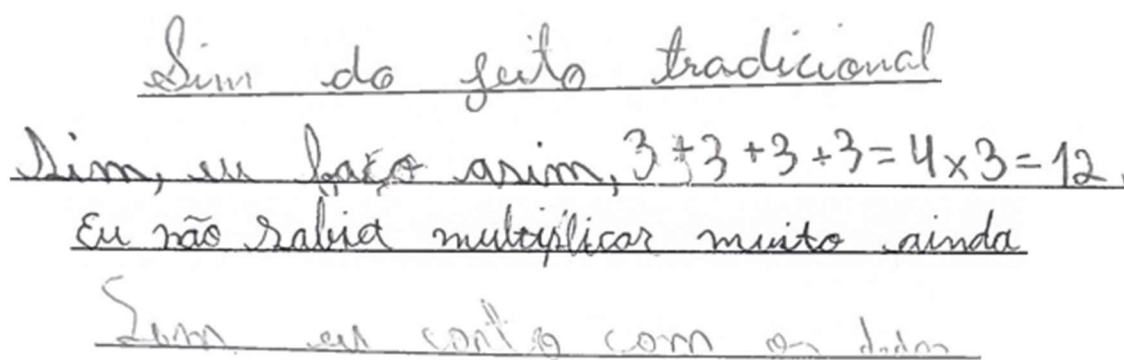 Sim do jeito tradicional
Sim, eu faço asim, 3+3+3+3=4x3=12.
Eu não sabia multiplicar muito ainda
Sim eu conto com os dedos